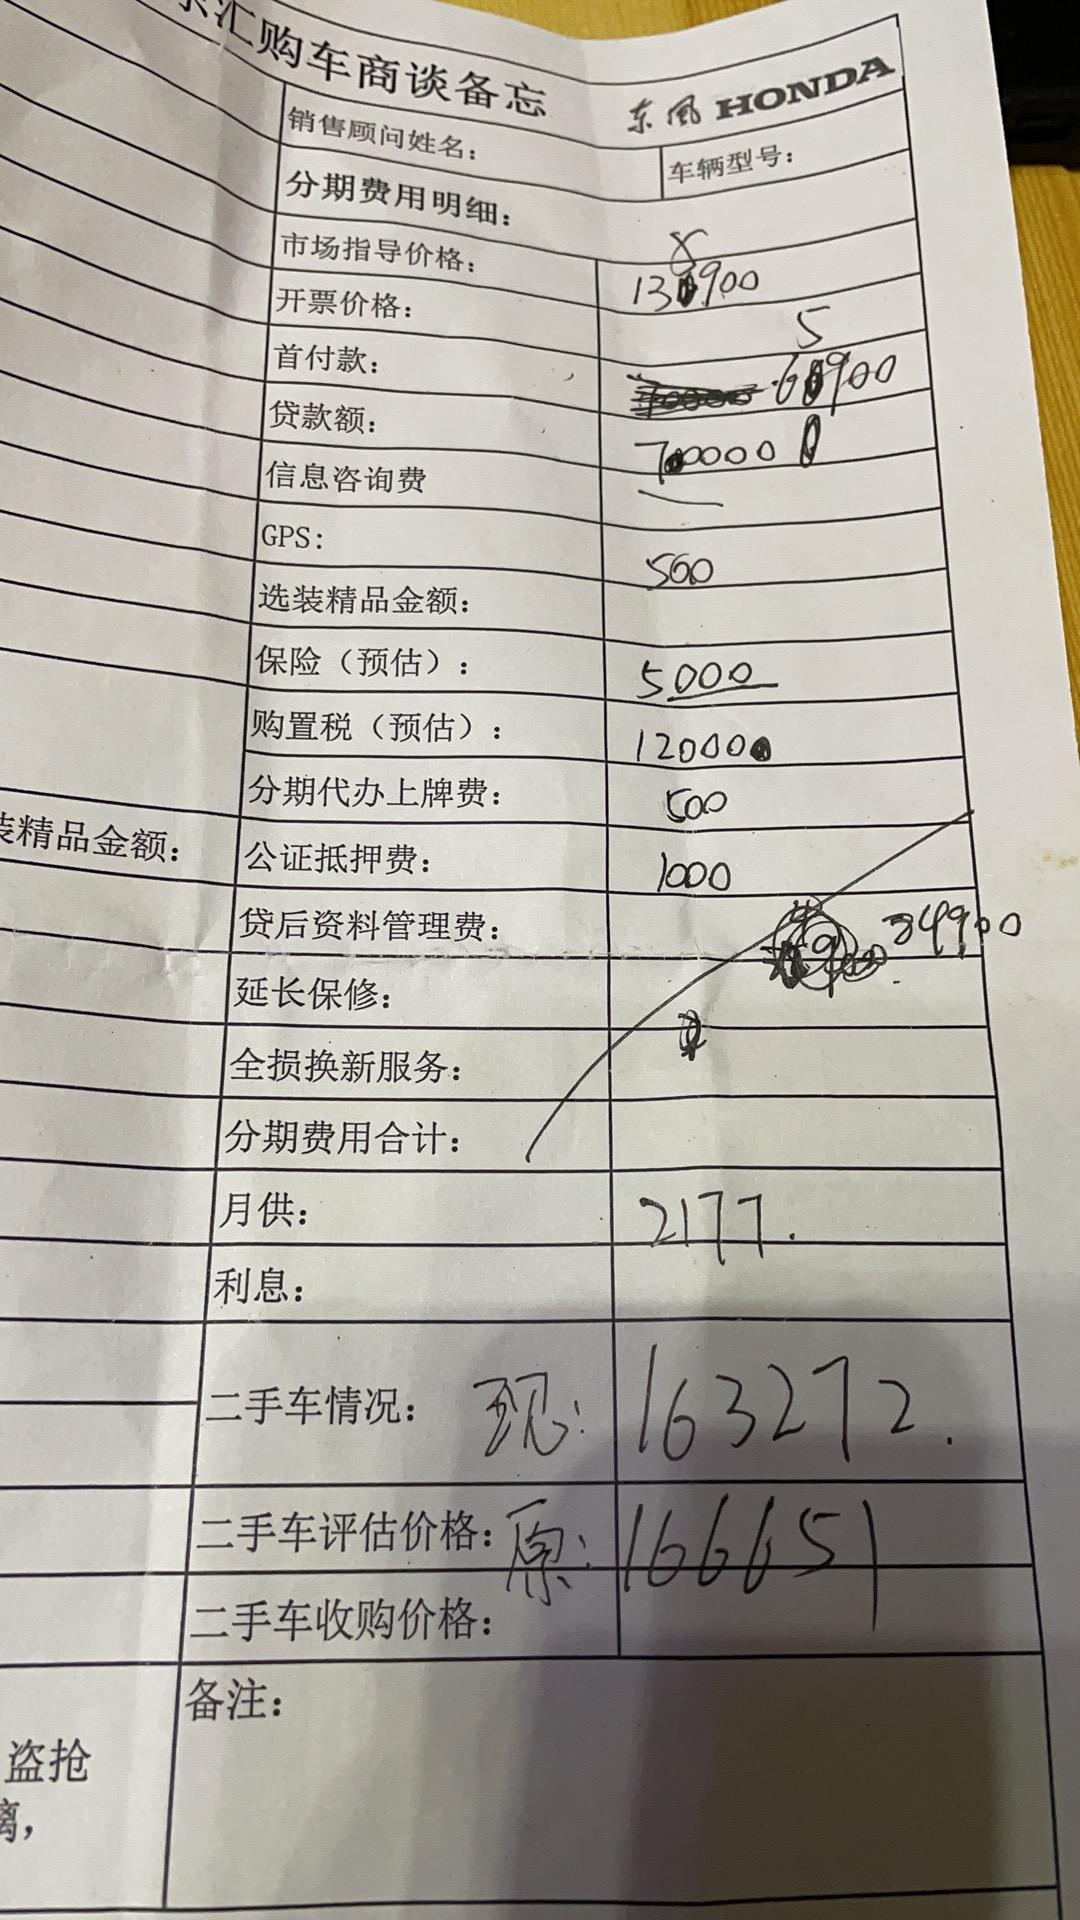 汇购车商谈备忘 东风 HONDA
销售顾问姓名： 车辆型号：
分期费用明细：
市场指导价格： 8
开票价格： 13 900
首付款： 5
6 900
贷款额： 70000
信息咨询费 —
GPS: 500
选装精品金额：
保险（预估）： 5000
购置税（预估）： 12000
分期代办上牌费： 500
装精品金额： 公证抵押费： 1000
贷后资料管理费： 84900
延长保修：
全损换新服务：
分期费用合计：
月供： 2177.
利息：
二手车情况： 现： 163272.
二手车评估价格： 原： 166651
二手车收购价格：
备注：
盗抢
璃，